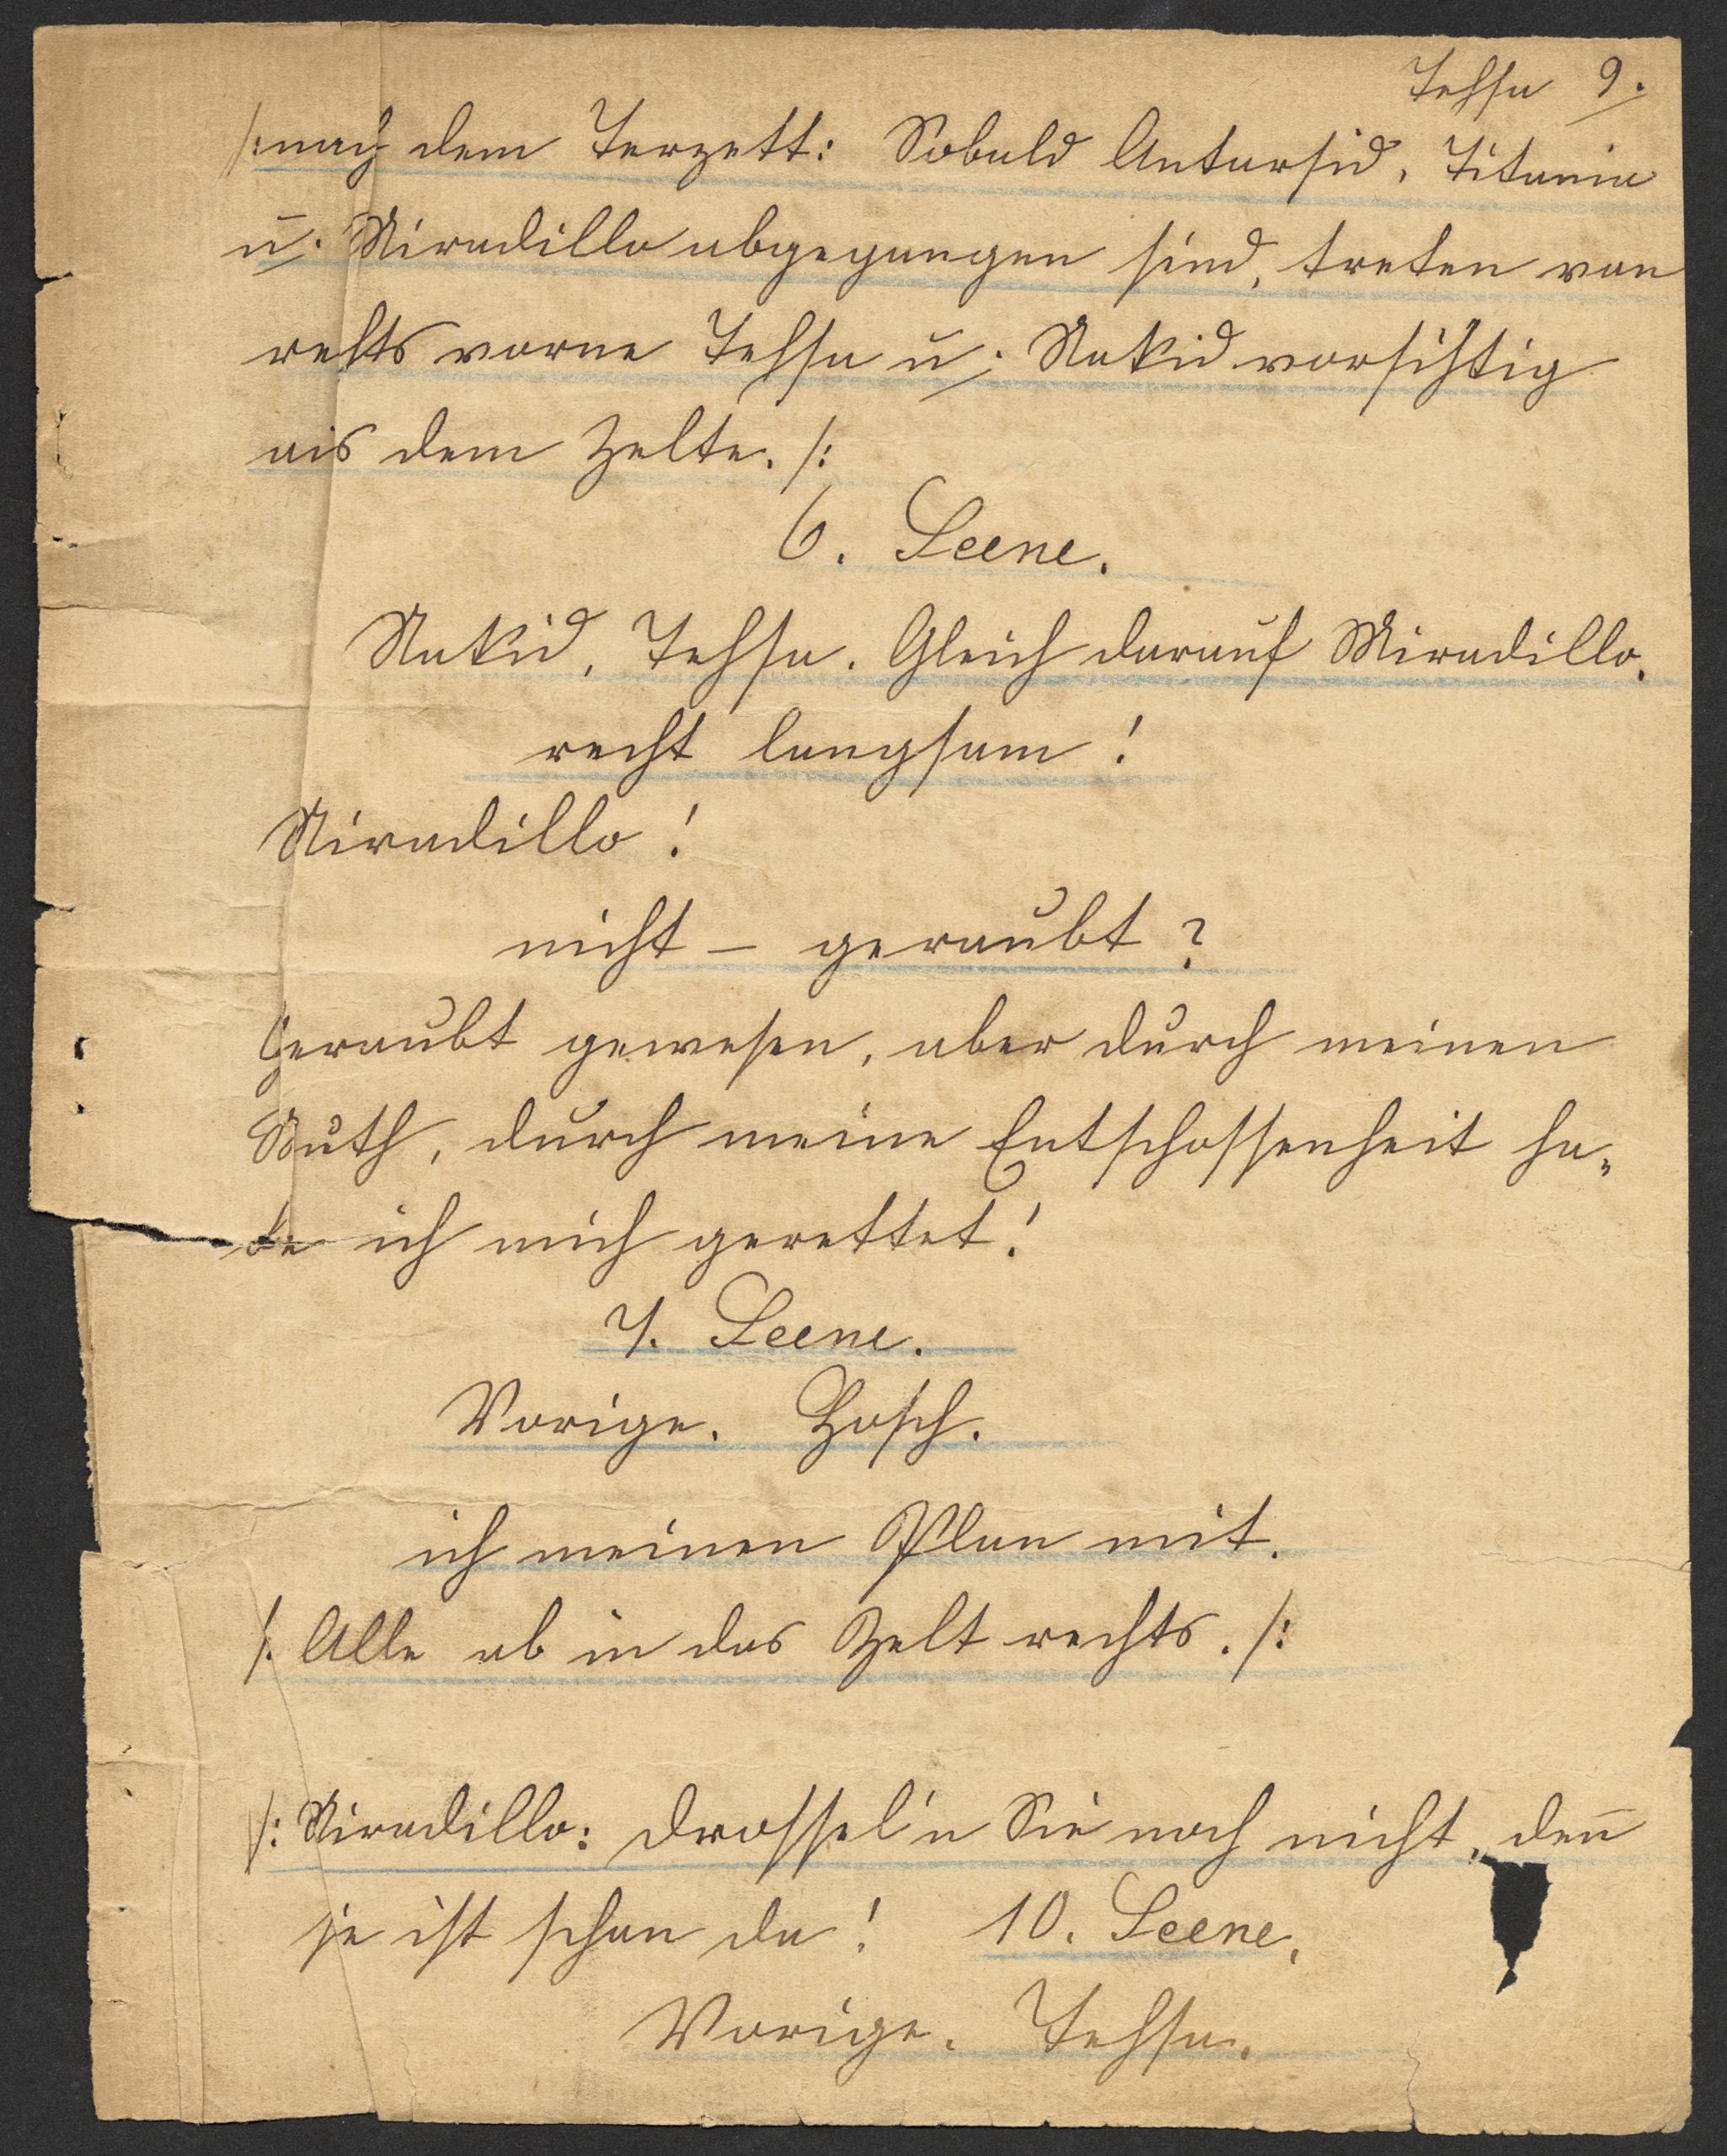 Tessa 9.
/: nach dem Terzett: Sobald Antarsid, Titania
u. Miradillo abgegangen sind, treten von
rechts vorne Tessa u. Nakid vorsichtig
aus dem Zelte. /:
6. Scene.
Nakid, Tessa. Gleich darauf Miradillo.
recht langsam!
Miradillo!
nicht – geraubt?
Geraubt gewesen, aber durch meinen
Muth, durch meine Entschossenheit ha-
be ich mich gerettet!
7. Scene.
Vorige. Hosch.
ich meinen Plan mit.
/: Alle ab in das Zelt rechts. /:
/: Miradillo: drossel'n Sie noch nicht, den̄
sie ist schon da! 10. Scene.
Vorige. Tessa.